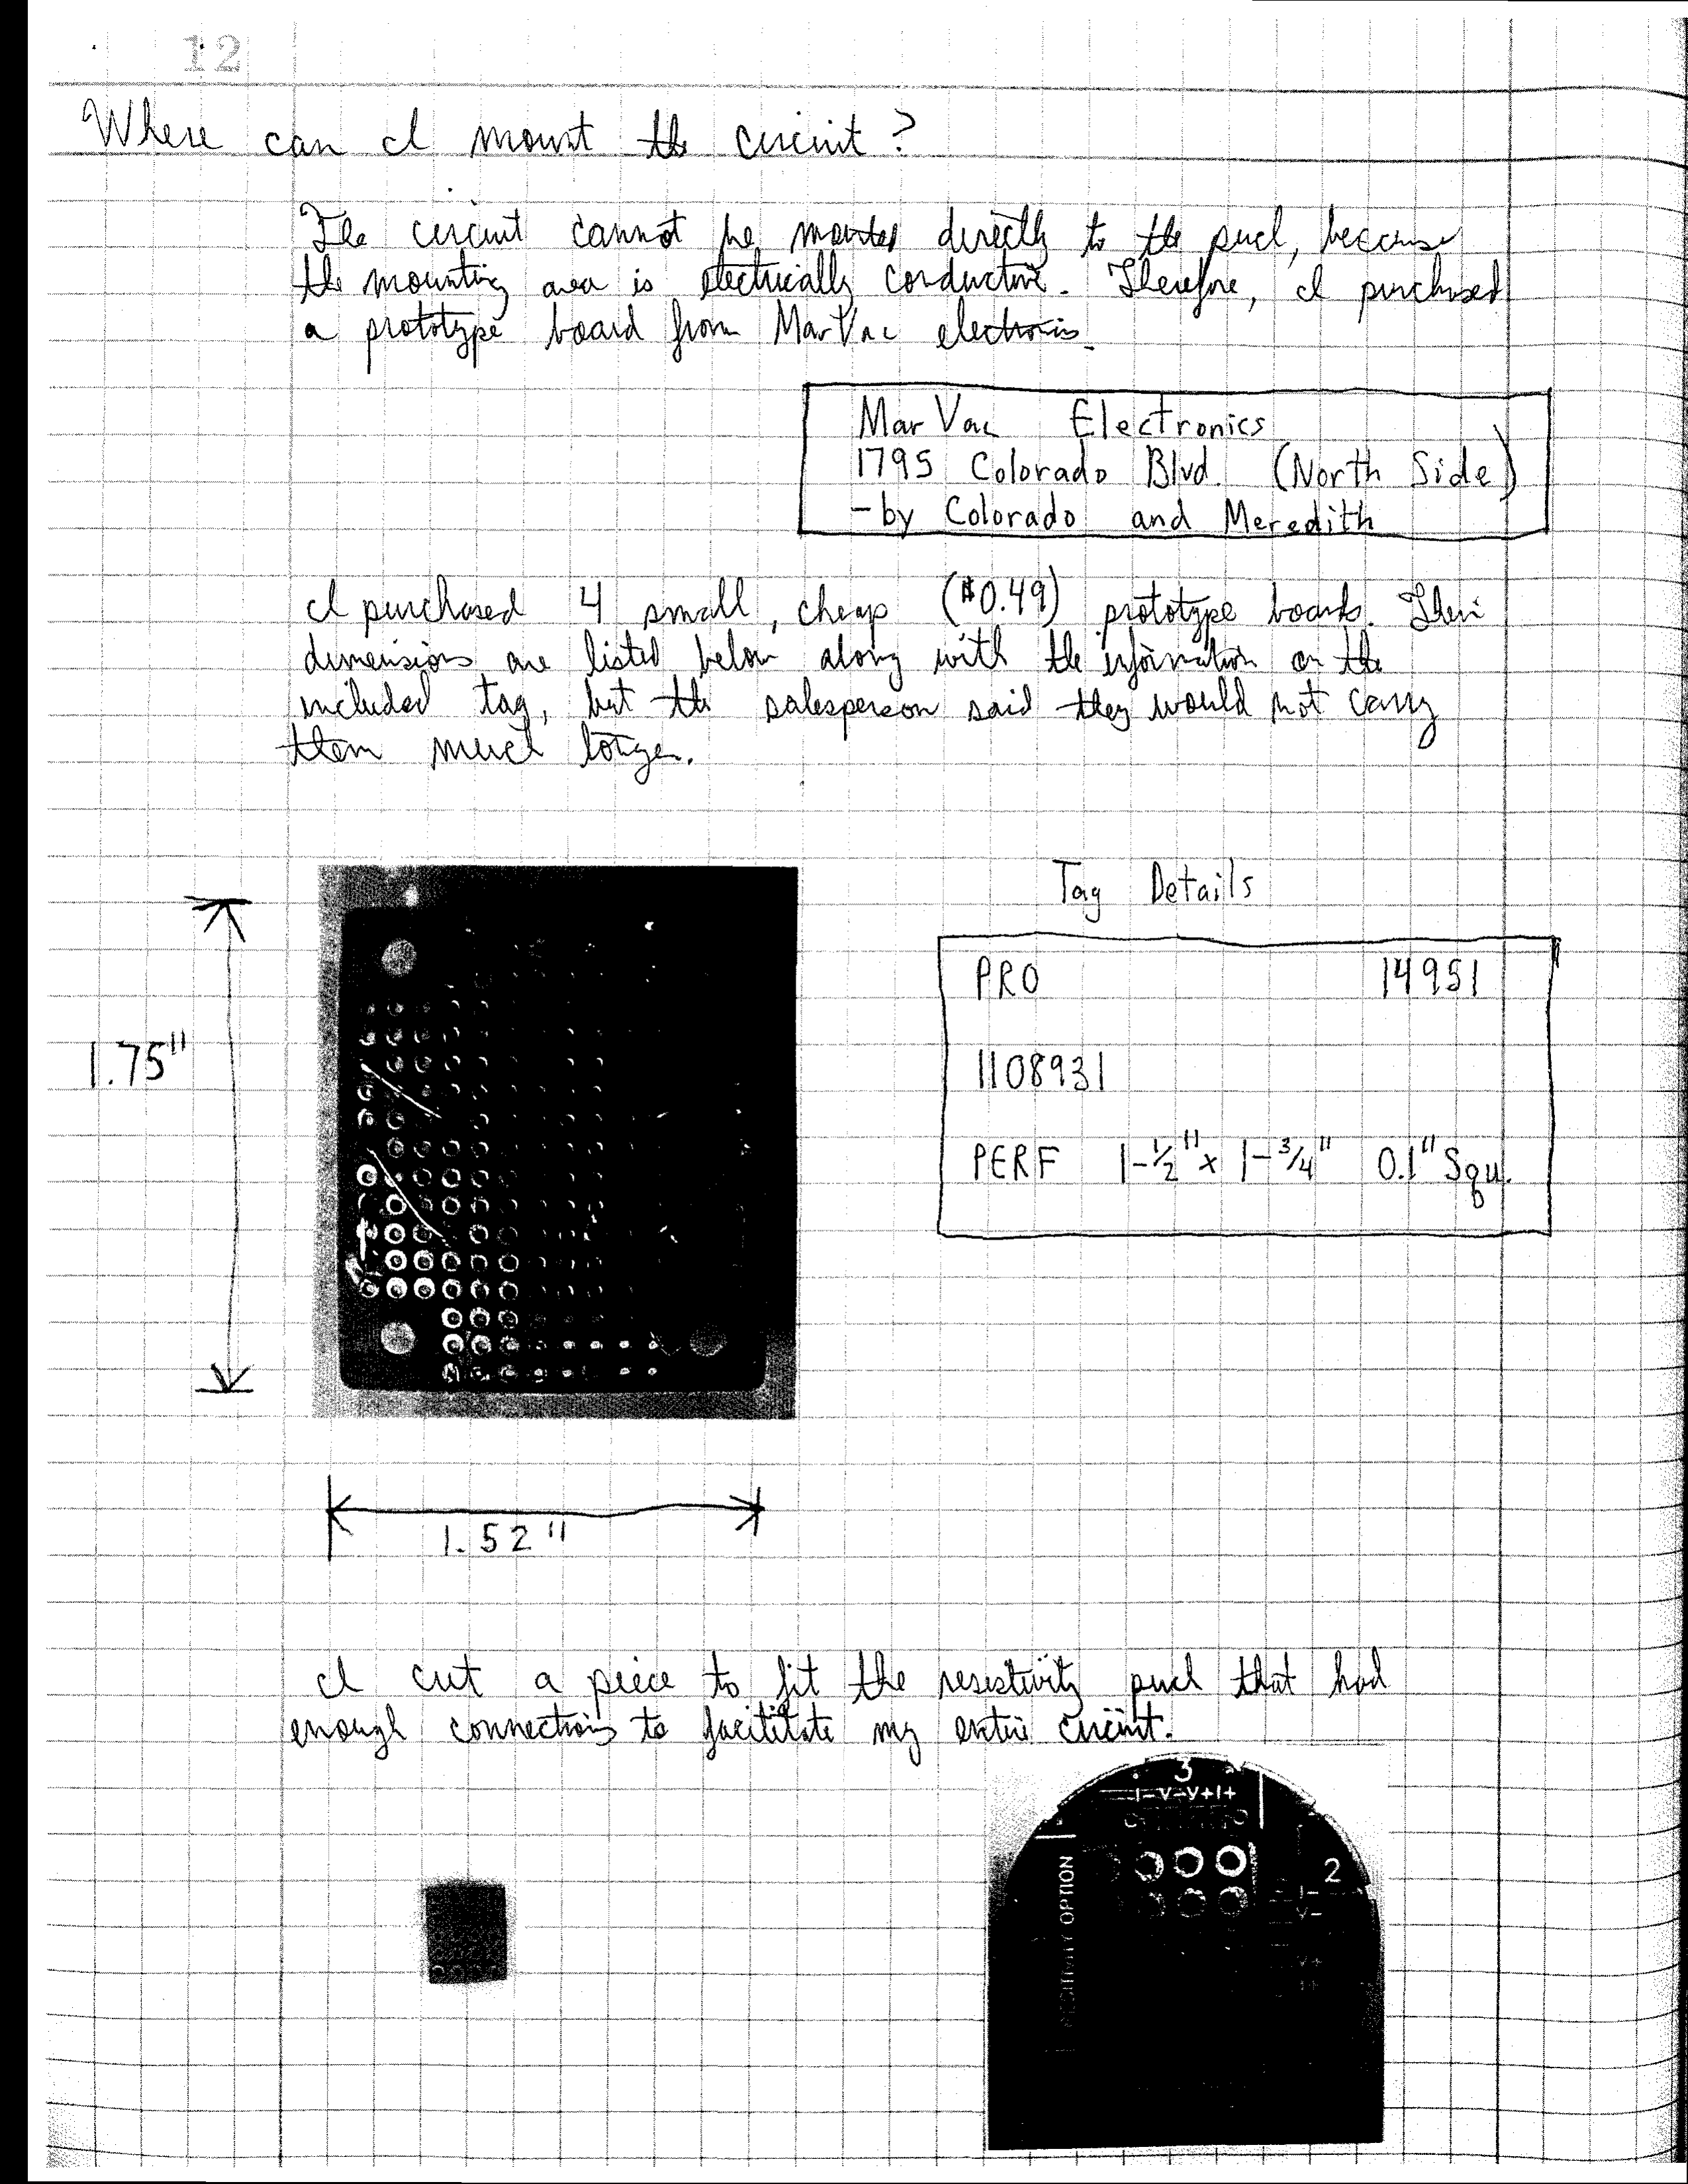 12
Where can I mount the circuit?
The circuit cannot be mounted directly to the puck, because
the mounting area is electrically conductive. Therefore, I purchased
a prototype board from MarVac electronics.
MarVac Electronics
1795 Colorado Blvd. (North Side)
- by Colorado and Meredith
I purchased 4 small, cheap ($0.49) prototype boards. Their
dimensions are listed below along with the information on the
included tag, but the salesperson said they would not carry
them much longer.
Tag Details
PRO 14951
1.75"
1108931
PERF 1-1/2" x 1-3/4" 0.1" Squ.
1.52"
I cut a piece to fit the resistivity puck that had
enough connections to facilitate my entire circuit.
3
I-V-V+I+
2
I-
V-
V+
I+
RESISTIVITY OPTION